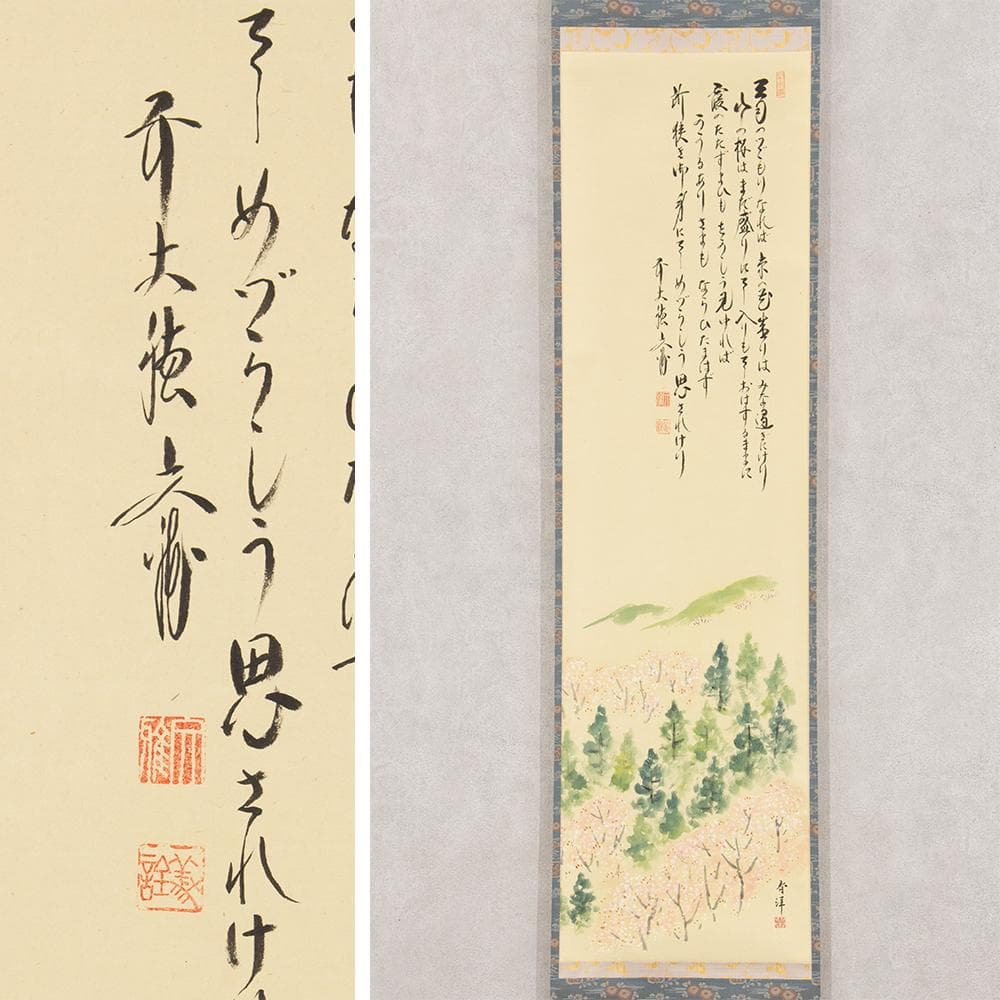 三月のつごもりなれば 京の花盛りは みな過ぎにけり
山の桜はまだ盛りにて 入りもておはするままに
霞のたたずまひもをかしう見ゆれば
かかるありさまも ならひたまはず
所狭き御身にて めづらしう 思されけり
前大徳
て めづらしう 思されけ
前大徳